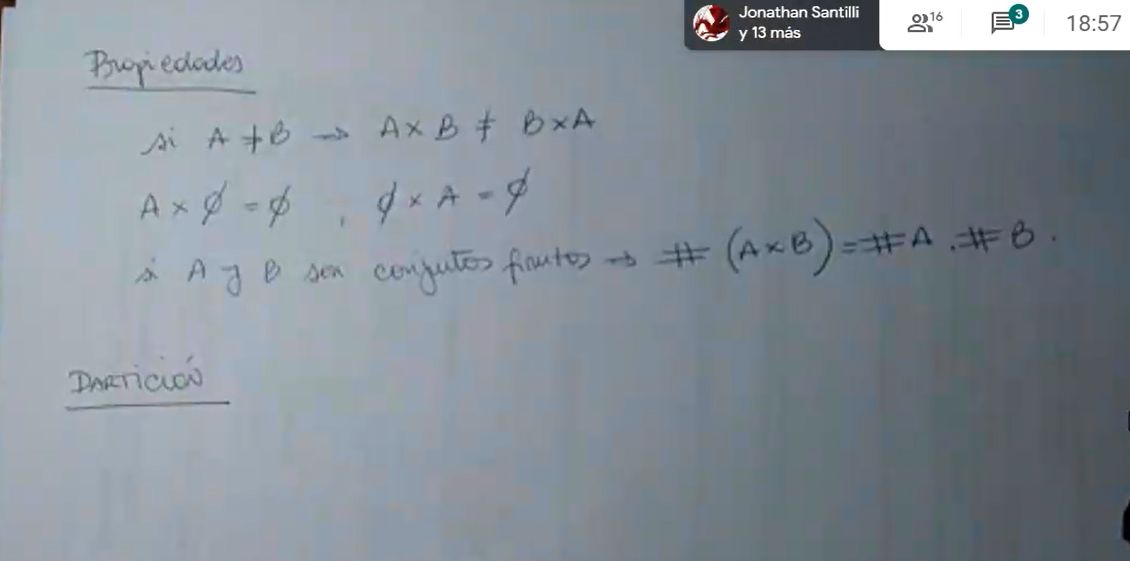 Jonathan Santilli
y 13 más
16
3
18:57
Propiedades
si A ≠ B → A × B ≠ B × A
A × ∅ = ∅ , ∅ × A = ∅
si A y B son conjutos finitos → # (A×B) = #A . #B .
PARTICIÓN